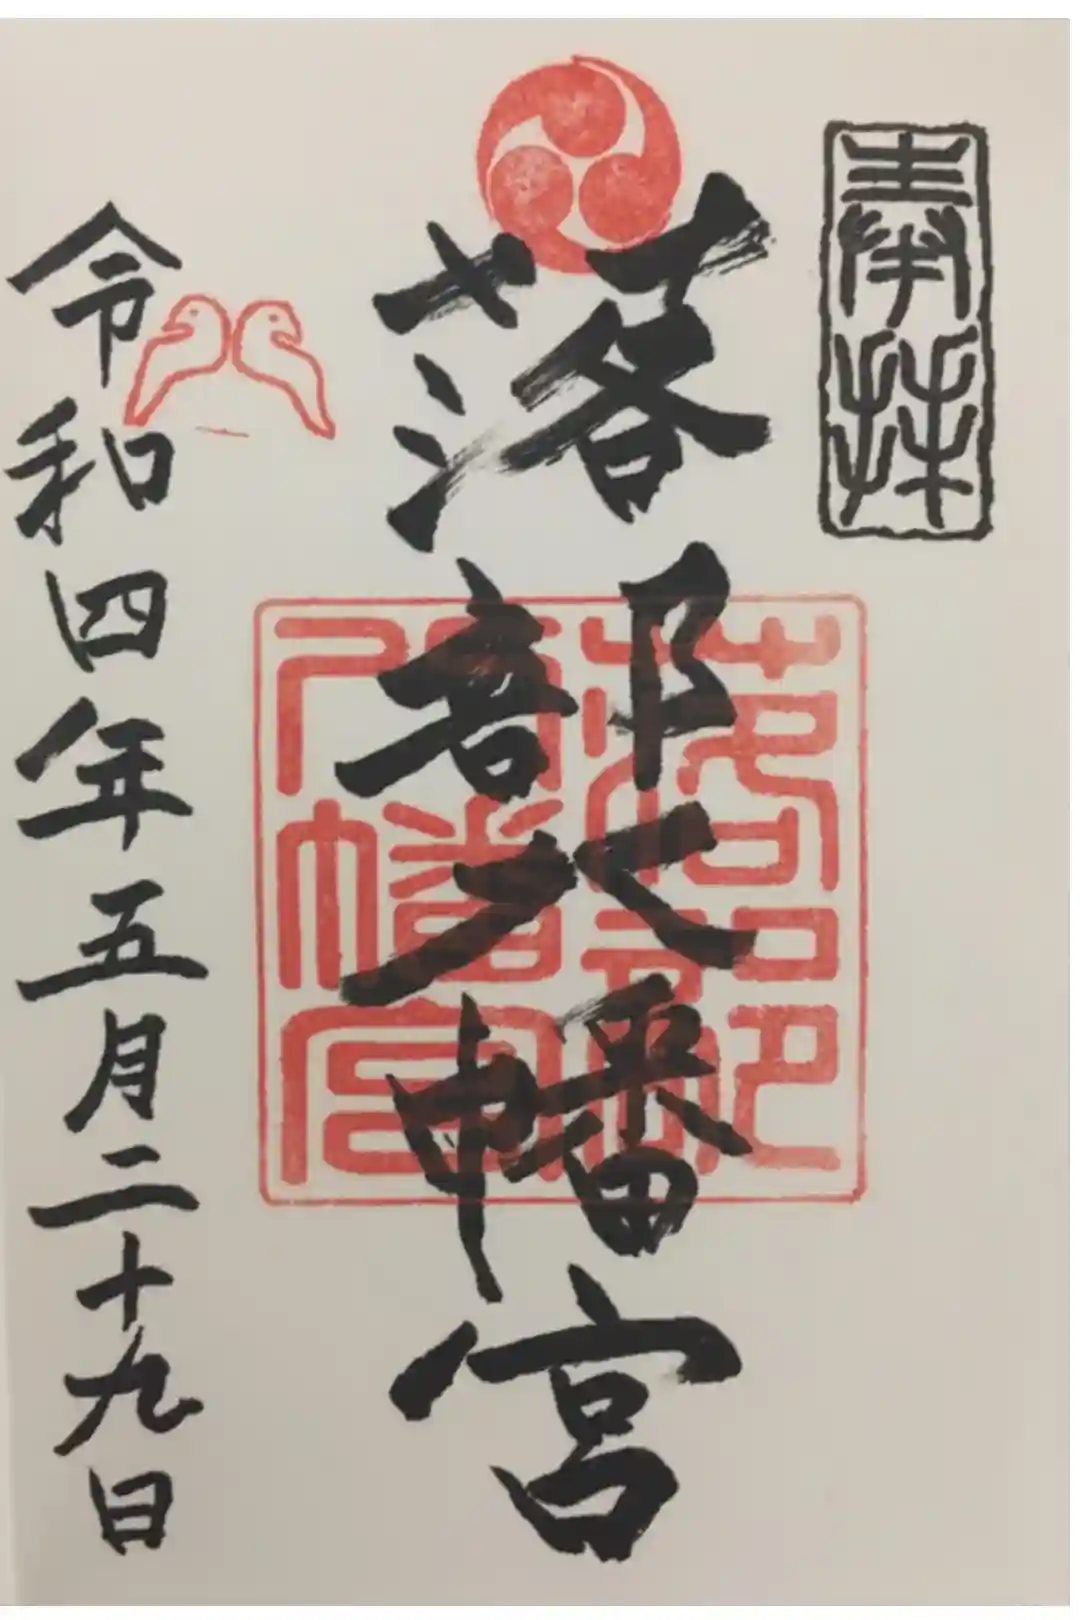 奉拝
落部八幡宮
落部
八幡宮
令和四年五月二十九日